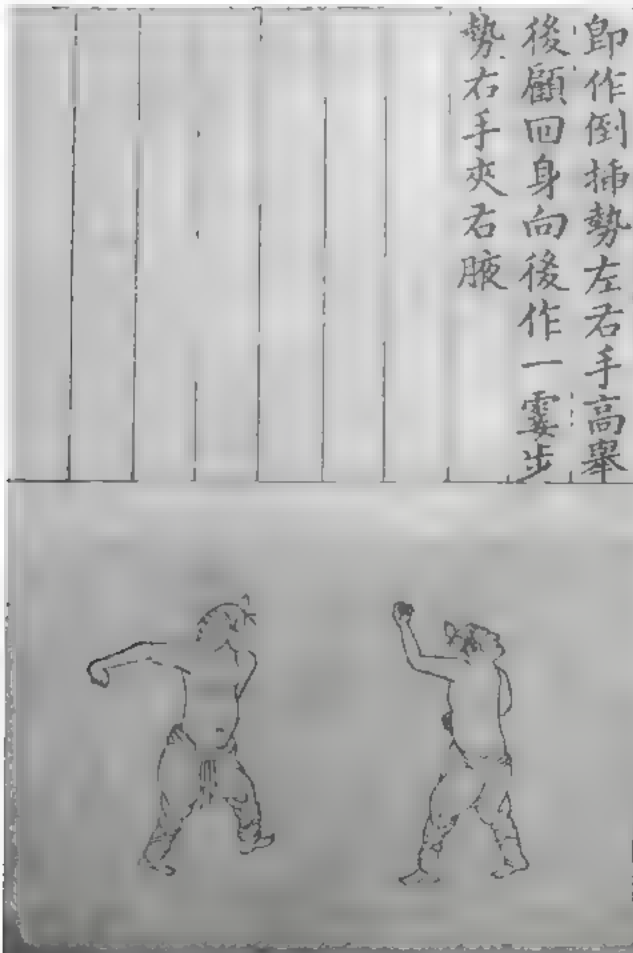 即作倒揷勢左右手高舉
後顧回身向後作一霎步
勢右手夾右腋